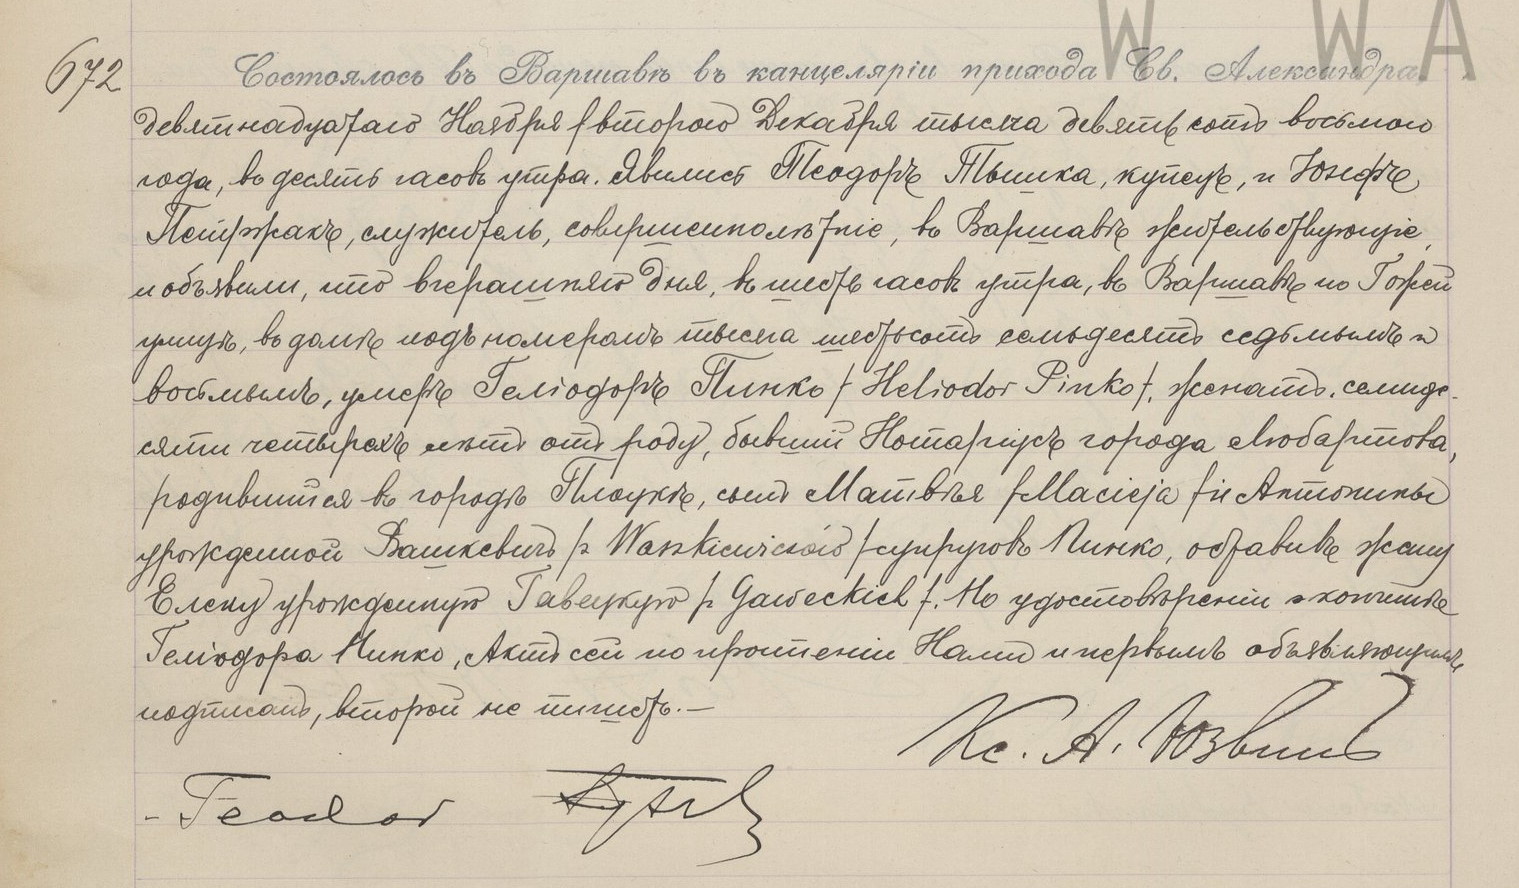 W WA
672
Состоялось въ Варшавѣ въ канцеляріи прихода Св. Александра
девятнадцатаго Ноября /второго Декабря тысяча девятьсотъ восьмого
года, въ десять часовъ утра. Явились Теодоръ Тышка, купецъ, и Юзефъ
Петржакъ, служитель, совершеннолѣтніе, въ Варшавѣ жительствующіе,
и объявили, что вчерашняго дня, въ шесть часовъ утра, въ Варшавѣ по Гожей
улицѣ, въ домѣ подъ номеромъ тысяча шестьсотъ семьдесятъ седьмымъ и
восьмымъ, умеръ Геліодоръ Пинко /Heliodor Pinko/, женатъ, семиде-
сяти четырехъ лѣтъ отъ роду, бывшій Нотаріусъ города Любартова,
родившійся въ городѣ Плоцкѣ, сынъ Матвѣя /Macieja/ и Антонины
урожденной Вашкевичъ /z Waszkiewiczów/ супруговъ Пинко, оставивъ жену
Елену урожденную Гавецкую /z Gaweckich/. По удостовѣреніи о кончинѣ
Геліодора Пинко, Актъ сей по прочтеніи Нами и первымъ объявляющимъ
подписанъ, второй не пишетъ.—
Кс. А.
- Teodor